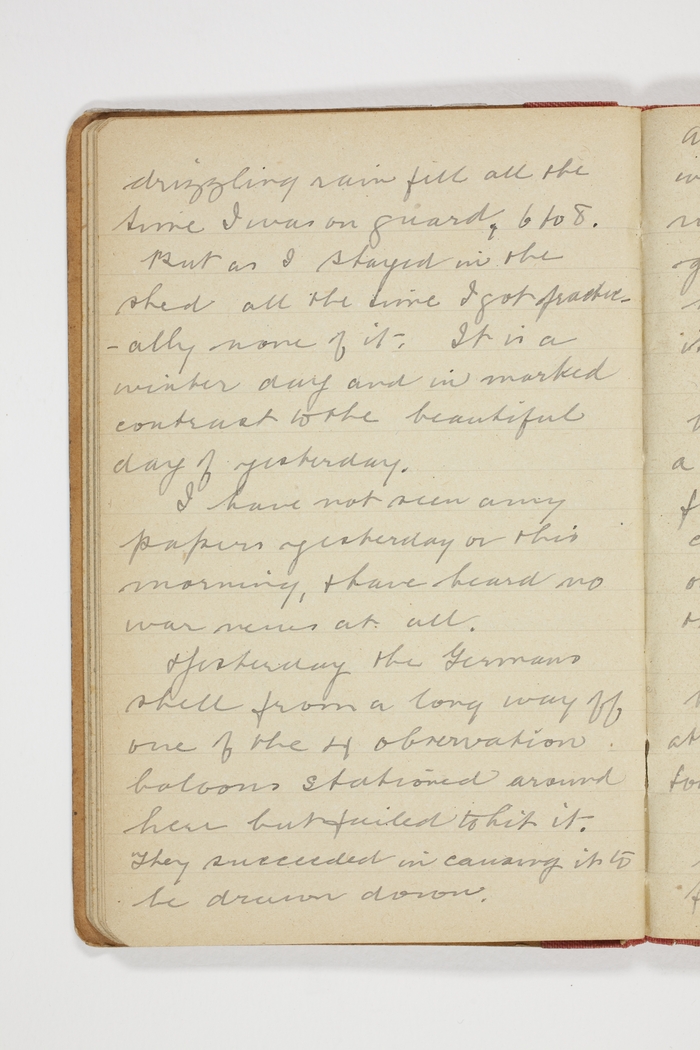 drizzling rain fell all the
time I was on guard, 6 to 8.
But as I stayed in the
shed all the time I got practic-
-ally none of it. It is a
winter day and in marked
contrast to the beautiful
day of yesterday.
I have not seen any
papers yesterday or this
morning, & have heard no
war news at all.
Yesterday the Germans
shell from a long way off
one of the 4 observation
baloons stationed around
here but failed to hit it.
They succeeded in causing it to
be drawn down.